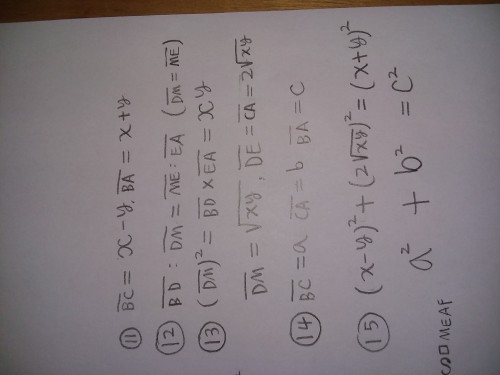 ⑪ B̅C̅ = x - y, B̅A̅ = x + y
⑫ B̅D̅ : D̅M̅ = M̅E̅ : E̅A̅ (D̅M̅ = M̅E̅)
⑬ (D̅M̅)² = B̅D̅ × E̅A̅ = xy
D̅M̅ = √xy, D̅E̅ = C̅A̅ = 2√xy
⑭ B̅C̅ = a C̅A̅ = b B̅A̅ = c
⑮ (x-y)² + (2√xy)² = (x+y)²
a² + b² = c²